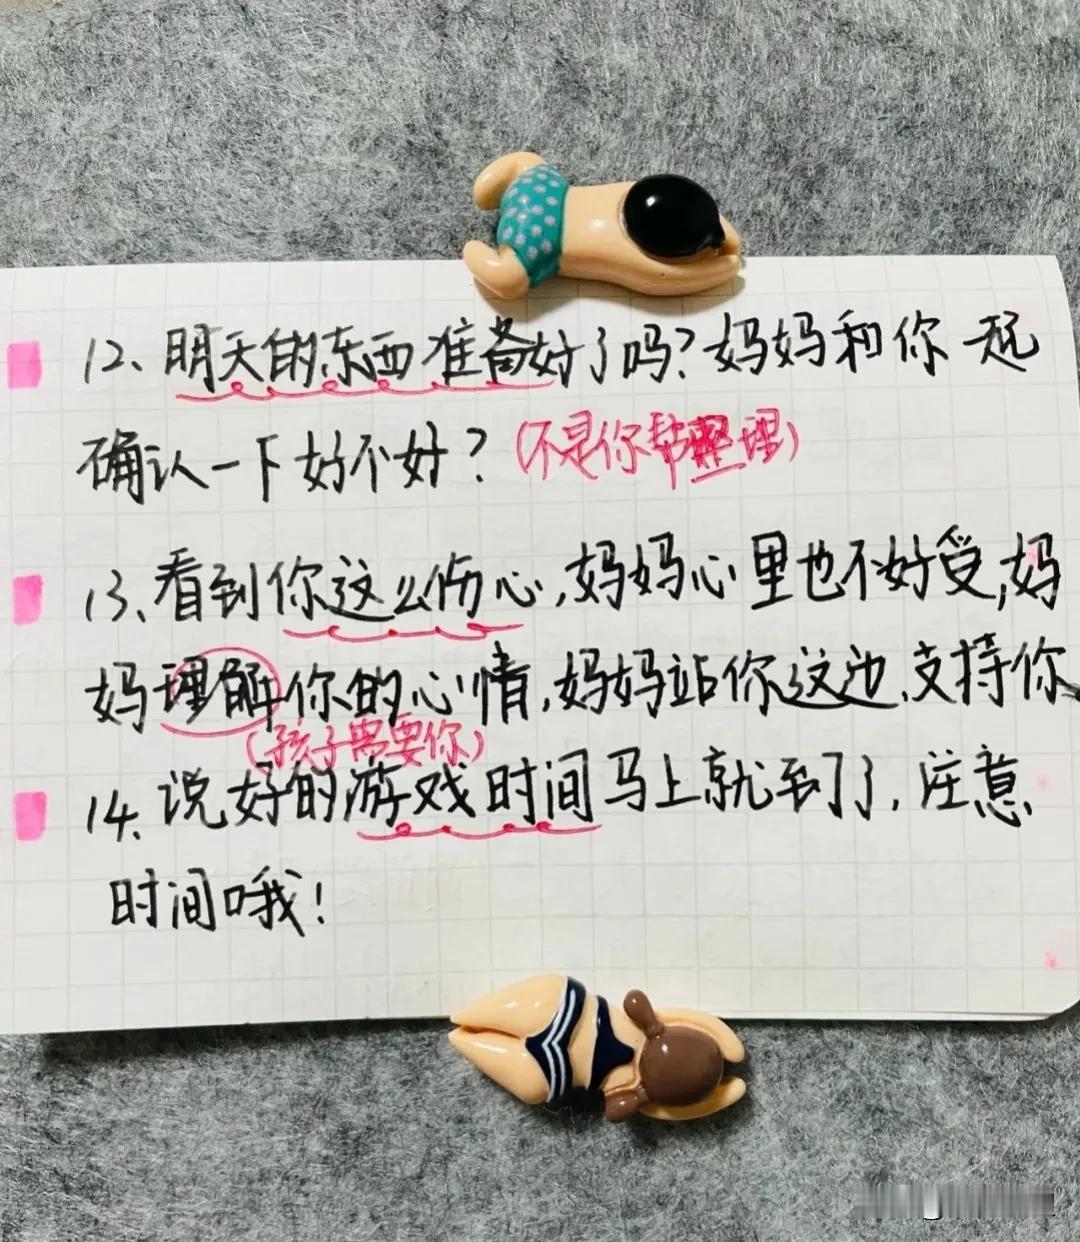 12、明天的东西准备好了吗?妈妈和你一起
确认一下好不好?(不是你帮整理)
13、看到你这么伤心,妈妈心里也不好受,妈
妈理解你的心情,妈妈站你这边,支持你、
(孩子需要你)
14、说好的游戏时间马上就到了,注意
时间哦!